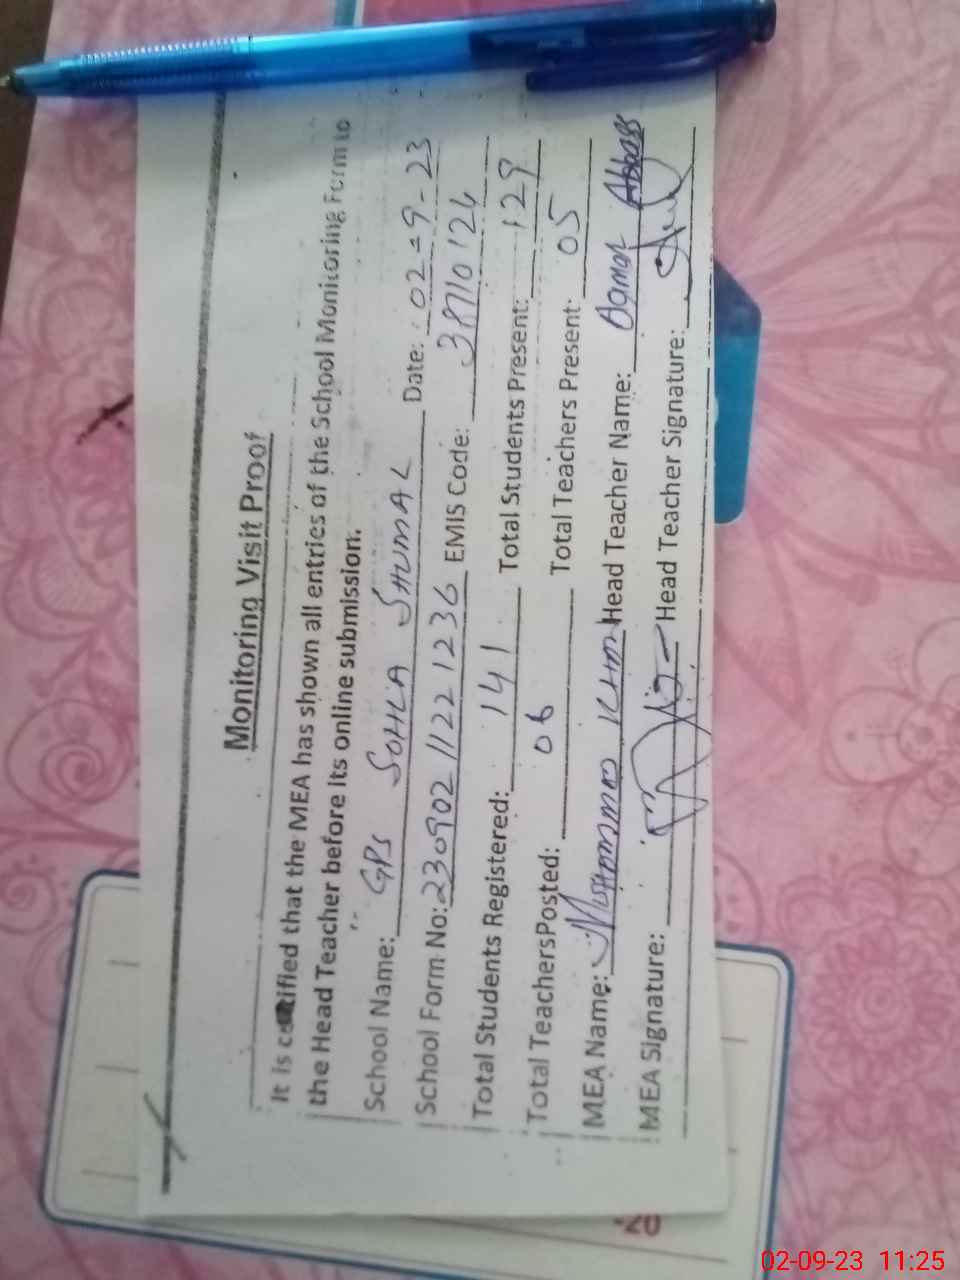 Monitoring Visit Proof
It is certified that the MEA has shown all entries of the School Monitoring Form to
the Head Teacher before its online submission.
School Name: GPS SOHLA SHUMAL Date: 02-9-23
School Form No: 23090211221236 EMIS Code: 38710124
Total Students Registered: 141 Total Students Present: 129
Total TeachersPosted: 06 Total Teachers Present: 05
MEA Name: MUHAMMAD KHAN Head Teacher Name: Qamar Abbas
MEA Signature: Head Teacher Signature:
02-09-23 11:25